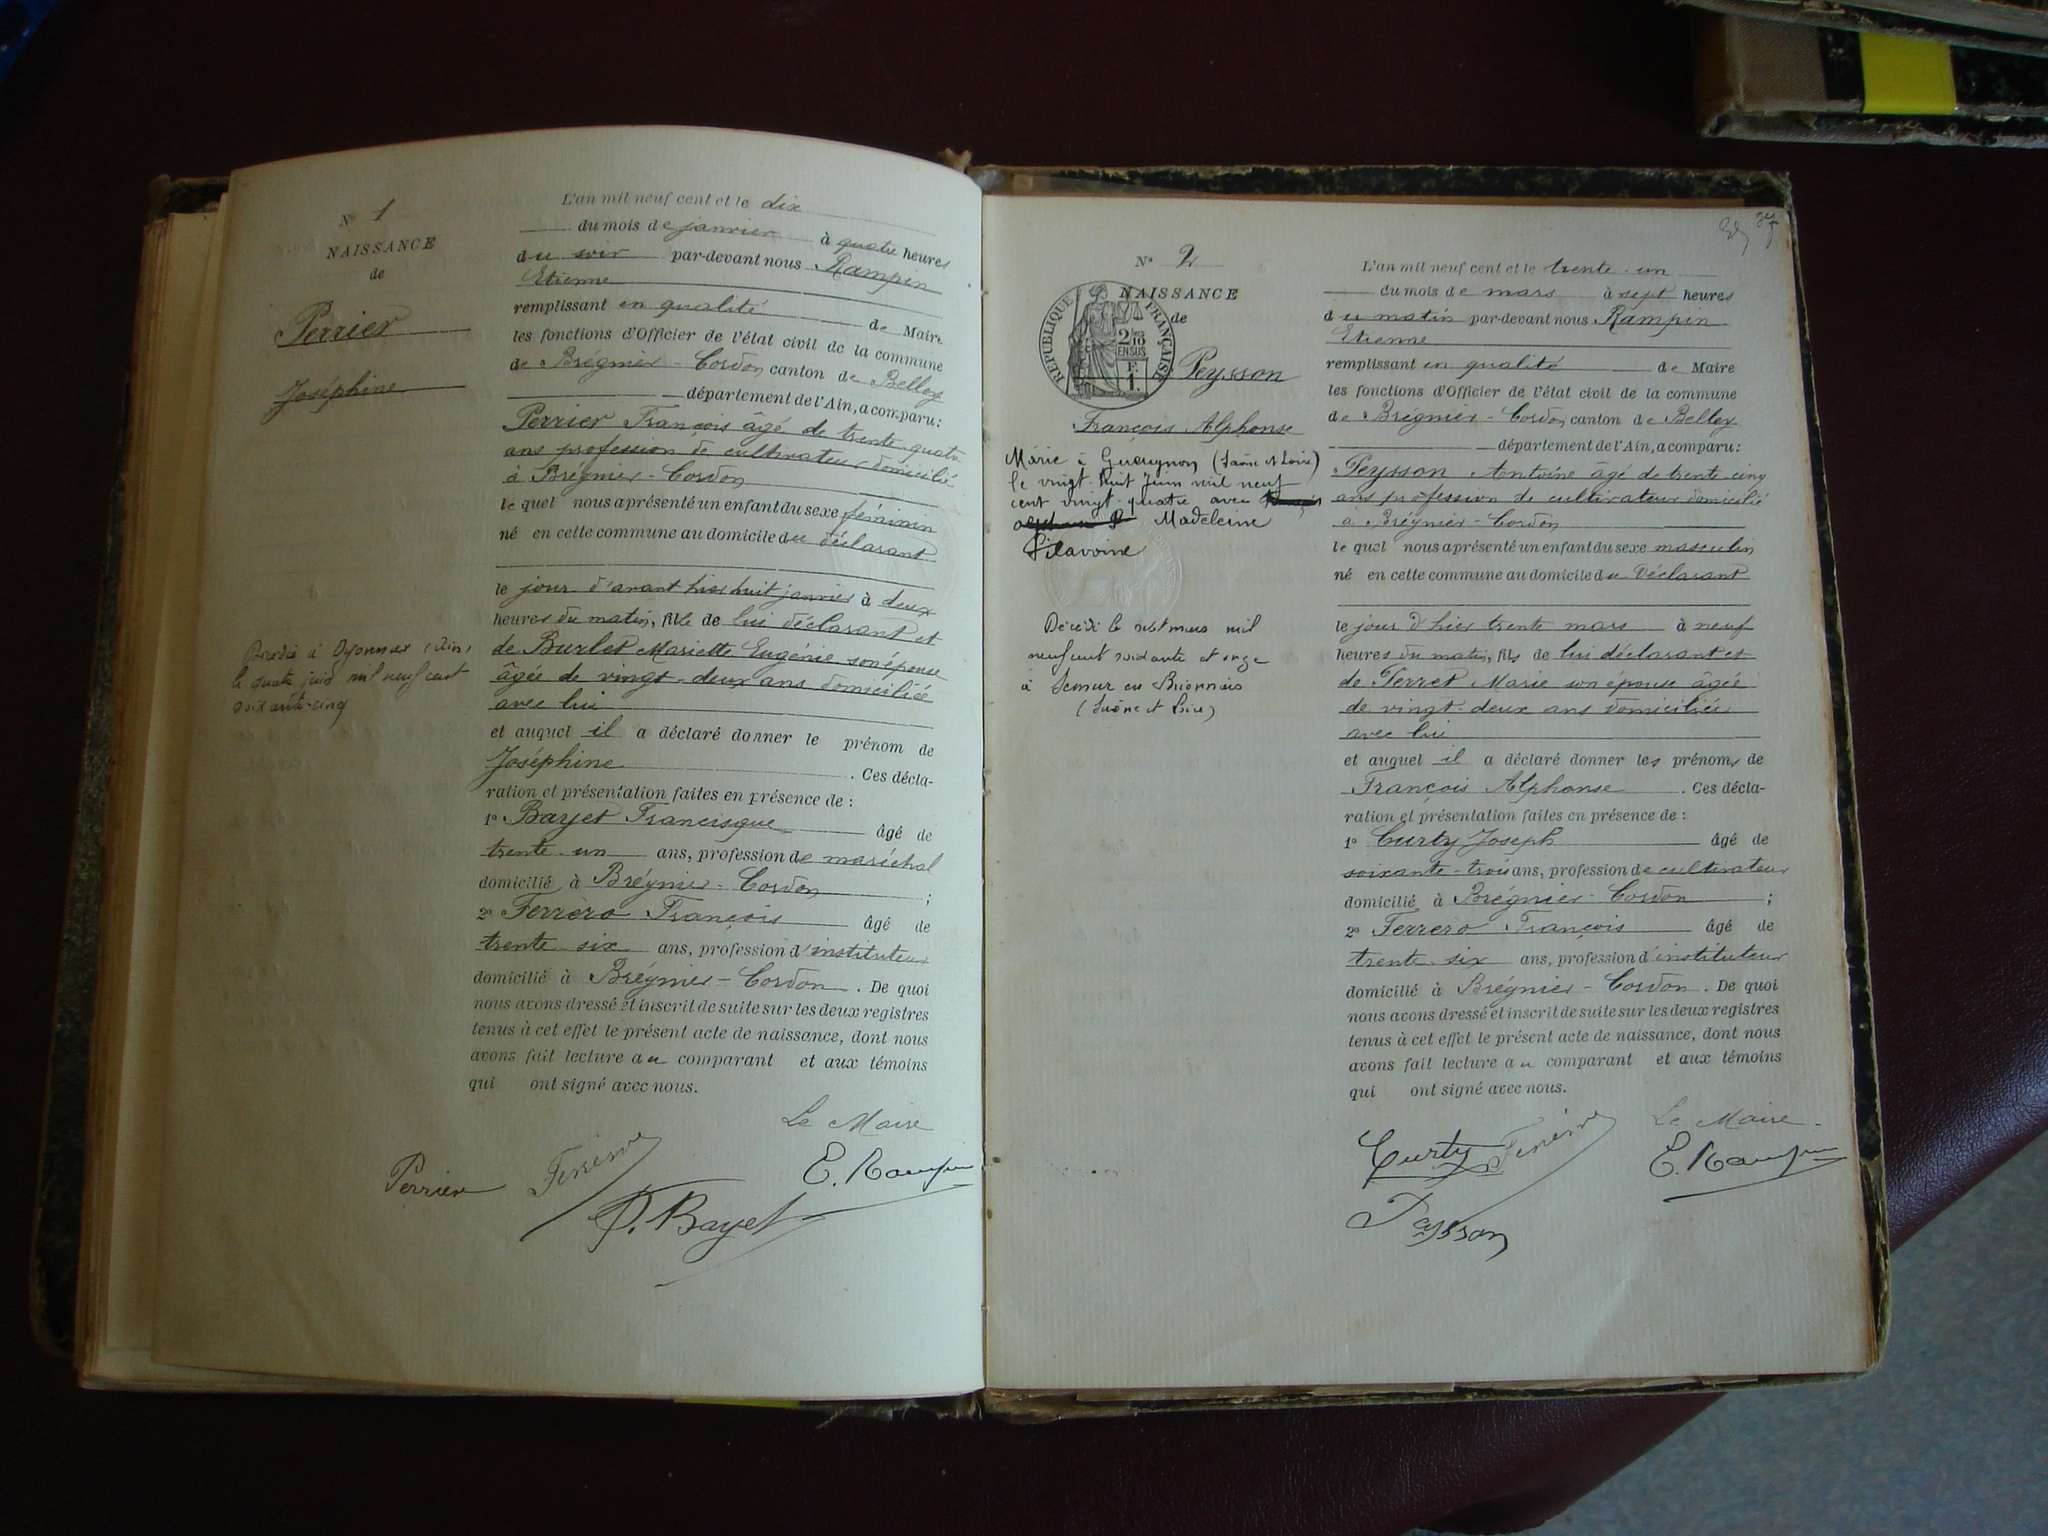 N° 1
NAISSANCE
de
Perrier
Joséphine
Décédée à Oyonnax (Ain)
le quatre juin mil neuf cent
soixante-cinq
L'an mil neuf cent et le dix
du mois de janvier à quatre heures
du soir par-devant nous Rampin
Etienne
remplissant en qualité de Maire
les fonctions d'Officier de l'état civil de la commune
de Brégnier-Cordon canton de Belley
département de l'Ain, a comparu:
Perrier François âgé de trente quatre
ans profession de cultivateur domicilié
à Brégnier-Cordon
le quel nous a présenté un enfant du sexe féminin
né en cette commune au domicile du déclarant
le jour d'avant hier huit janvier à deux
heures du matin, fille de lui déclarant et
de Burlet Mariette Eugénie son épouse
âgée de vingt-deux ans domiciliée
avec lui
et auquel il a déclaré donner le prénom de
Joséphine . Ces décla-
ration et présentation faites en présence de :
1° Bayet Francisque âgé de
trente-un ans, profession de maréchal
domicilié à Brégnier-Cordon ;
2° Ferrero François âgé de
trente six ans, profession d'instituteur
domicilié à Brégnier-Cordon . De quoi
nous avons dressé et inscrit de suite sur les deux registres
tenus à cet effet le présent acte de naissance, dont nous
avons fait lecture au comparant et aux témoins
qui ont signé avec nous.
Le Maire
Perrier Ferrero E. Rampin
Bayet
N° 2
NAISSANCE
de
REPUBLIQUE FRANÇAISE
2/10
EN SUS
1 F.
Peysson
François Alphonse
Marié à Gueugnon (Saône et Loire)
le vingt-huit Juin mil neuf
cent vingt-quatre avec
Madeleine
Pilavoine
Décédé le sept mars mil
neuf cent soixante et onze
à Semur en Brionnais
(Saône et Loire)
L'an mil neuf cent et le trente-un
du mois de mars à sept heures
du matin par-devant nous Rampin
Etienne
remplissant en qualité de Maire
les fonctions d'Officier de l'état civil de la commune
de Brégnier-Cordon canton de Belley
département de l'Ain, a comparu:
Peysson Antoine âgé de trente cinq
ans profession de cultivateur domicilié
à Brégnier-Cordon
le quel nous a présenté un enfant du sexe masculin
né en cette commune au domicile du déclarant
le jour d'hier trente mars à neuf
heures du matin, fils de lui déclarant et
de Perret Marie son épouse âgée
de vingt-deux ans domiciliée
avec lui
et auquel il a déclaré donner les prénoms de
François Alphonse . Ces décla-
ration et présentation faites en présence de :
1° Curty Joseph âgé de
soixante-trois ans, profession de cultivateur
domicilié à Brégnier-Cordon ;
2° Ferrero François âgé de
trente-six ans, profession d'instituteur
domicilié à Brégnier-Cordon . De quoi
nous avons dressé et inscrit de suite sur les deux registres
tenus à cet effet le présent acte de naissance, dont nous
avons fait lecture au comparant et aux témoins
qui ont signé avec nous.
Le Maire
Curty Ferrero E. Rampin
Paysson